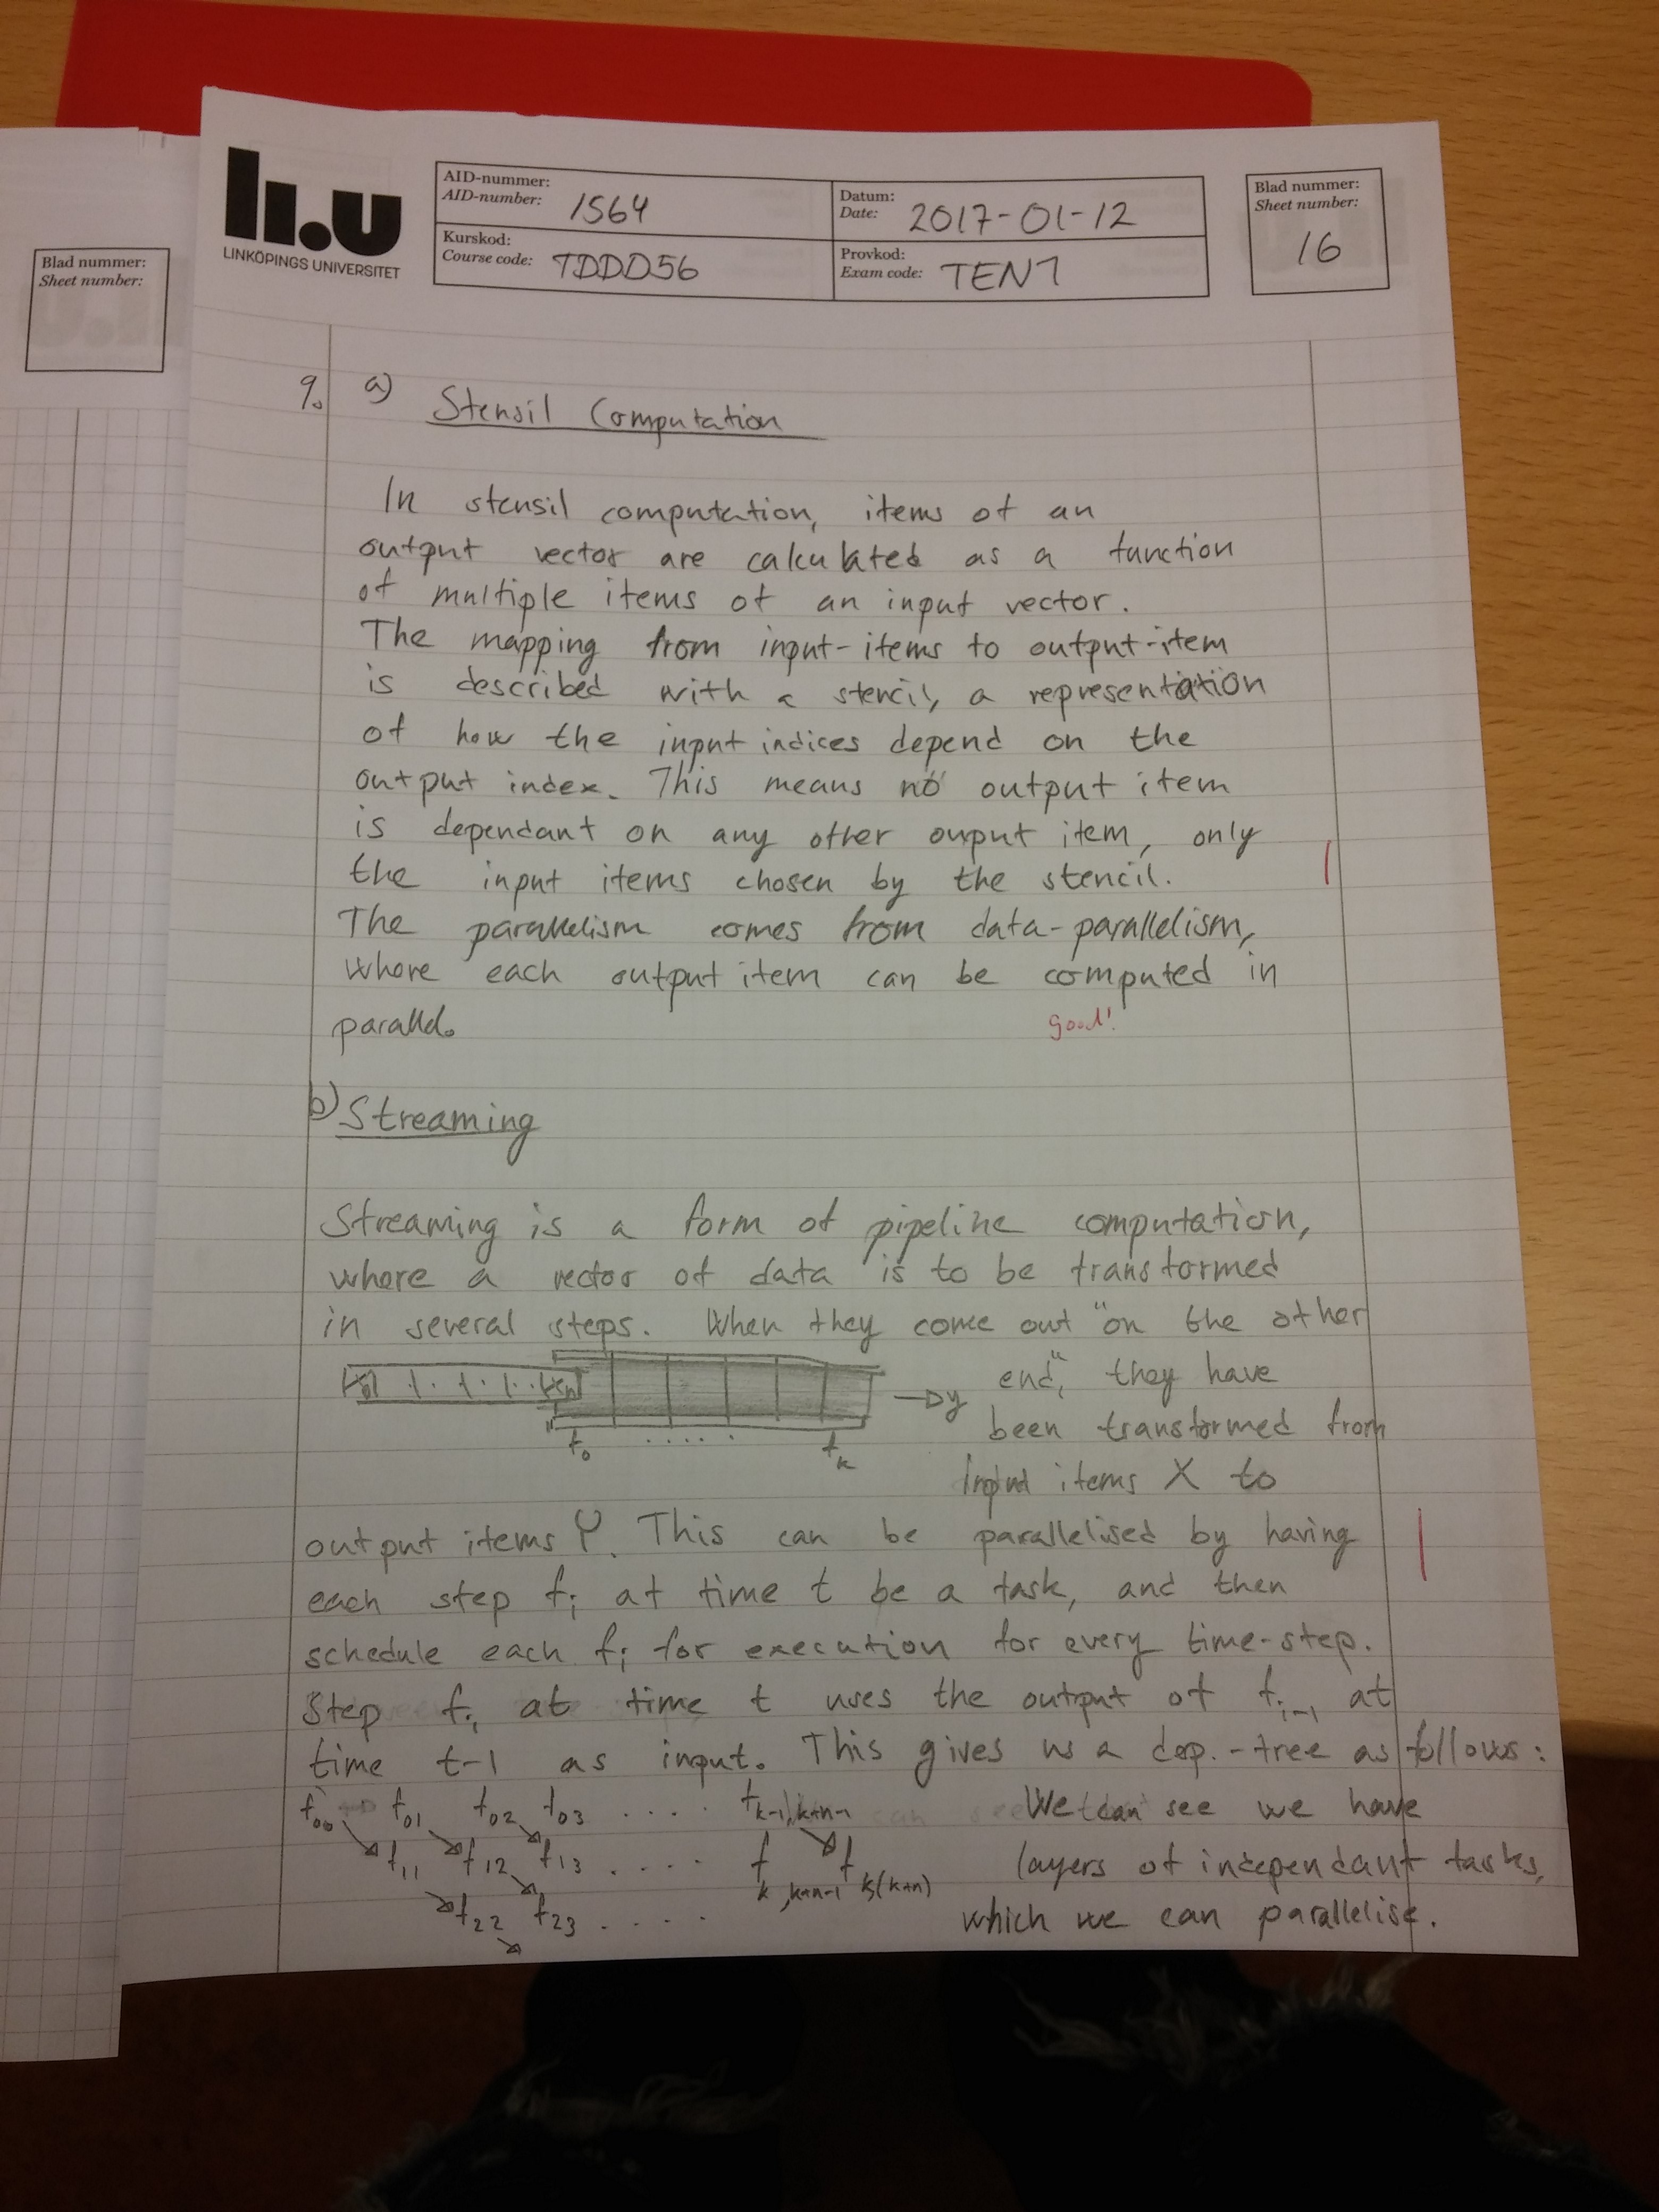 Blad nummer:
Sheet number:
li.u
LINKÖPINGS UNIVERSITET
AID-nummer:
AID-number: 1564
Datum:
Date: 2017-01-12
Kurskod:
Course code: TDDD56
Provkod:
Exam code: TEN1
Blad nummer:
Sheet number:
16
9. a) Stensil Computation
In stensil computation, items of an
output vector are calculated as a function
of multiple items of an input vector.
The mapping from input-items to output-item
is described with a stencil, a representation
of how the input indices depend on the
output index. This means no output item
is dependant on any other ouput item, only
the input items chosen by the stencil.
The parallelism comes from data-parallelism,
where each output item can be computed in
parallel.
good!
b) Streaming
Streaming is a form of pipeline computation,
where a vector of data is to be transformed
in several steps. When they come out "on the other
end", they have
→ y
been transformed from
f0 ..... fk
input items X to
output items Y. This can be parallelised by having
each step fi at time t be a task, and then
schedule each fi for execution for every time-step.
Step fi, at time t uses the output of fi-1 at
time t-1 as input. This gives us a dep.-tree as follows:
f00 f01 f02 f03 .... fk-1,k+n-1 We can see we have
f11 f12 f13 .... fk,k+n-1 fk,(k+n) layers of independant tasks,
f22 f23 .... which we can parallelise.